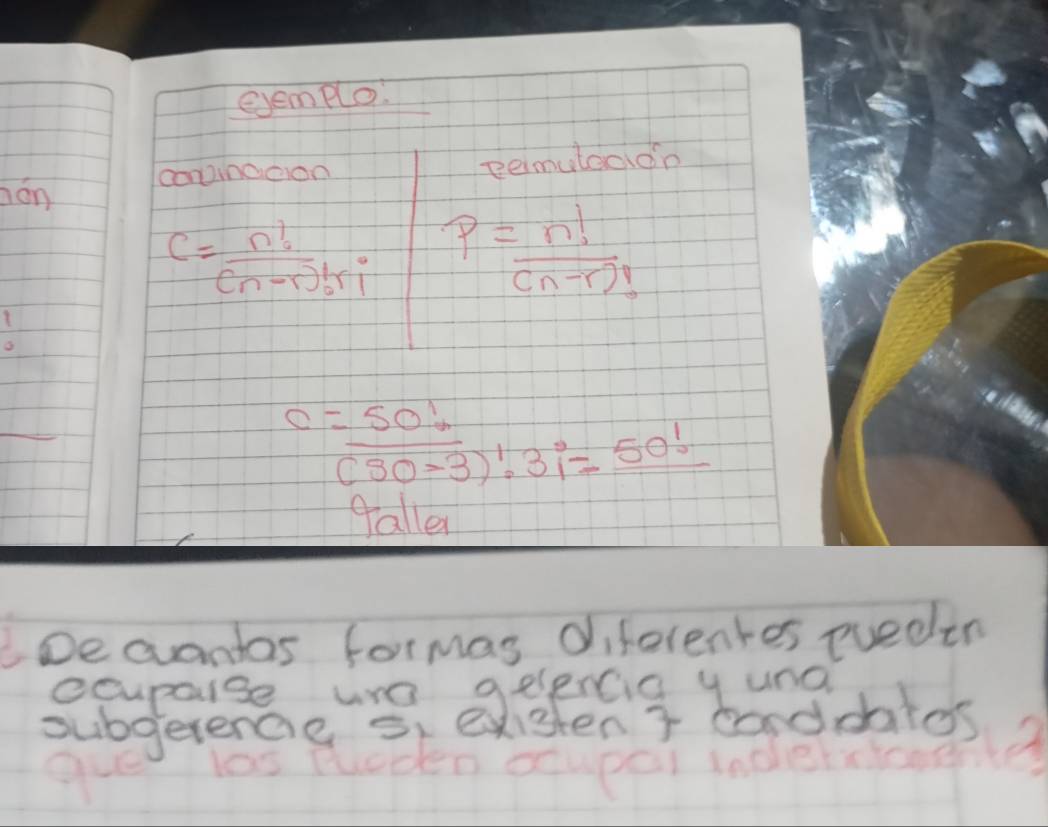 ejemplo:
ión
convinacion
permutación
C = n!
(n-r)!r¡
P = n!
(n-r)!
!
C = 50!
(30-3)! 3¡ = 50!
Taller
¿De cuantas formas diferentes pueden
ocuparse una gerencia y una
subgerencie si existen 7 candidatos
que los pueden ocupar indistintamente?